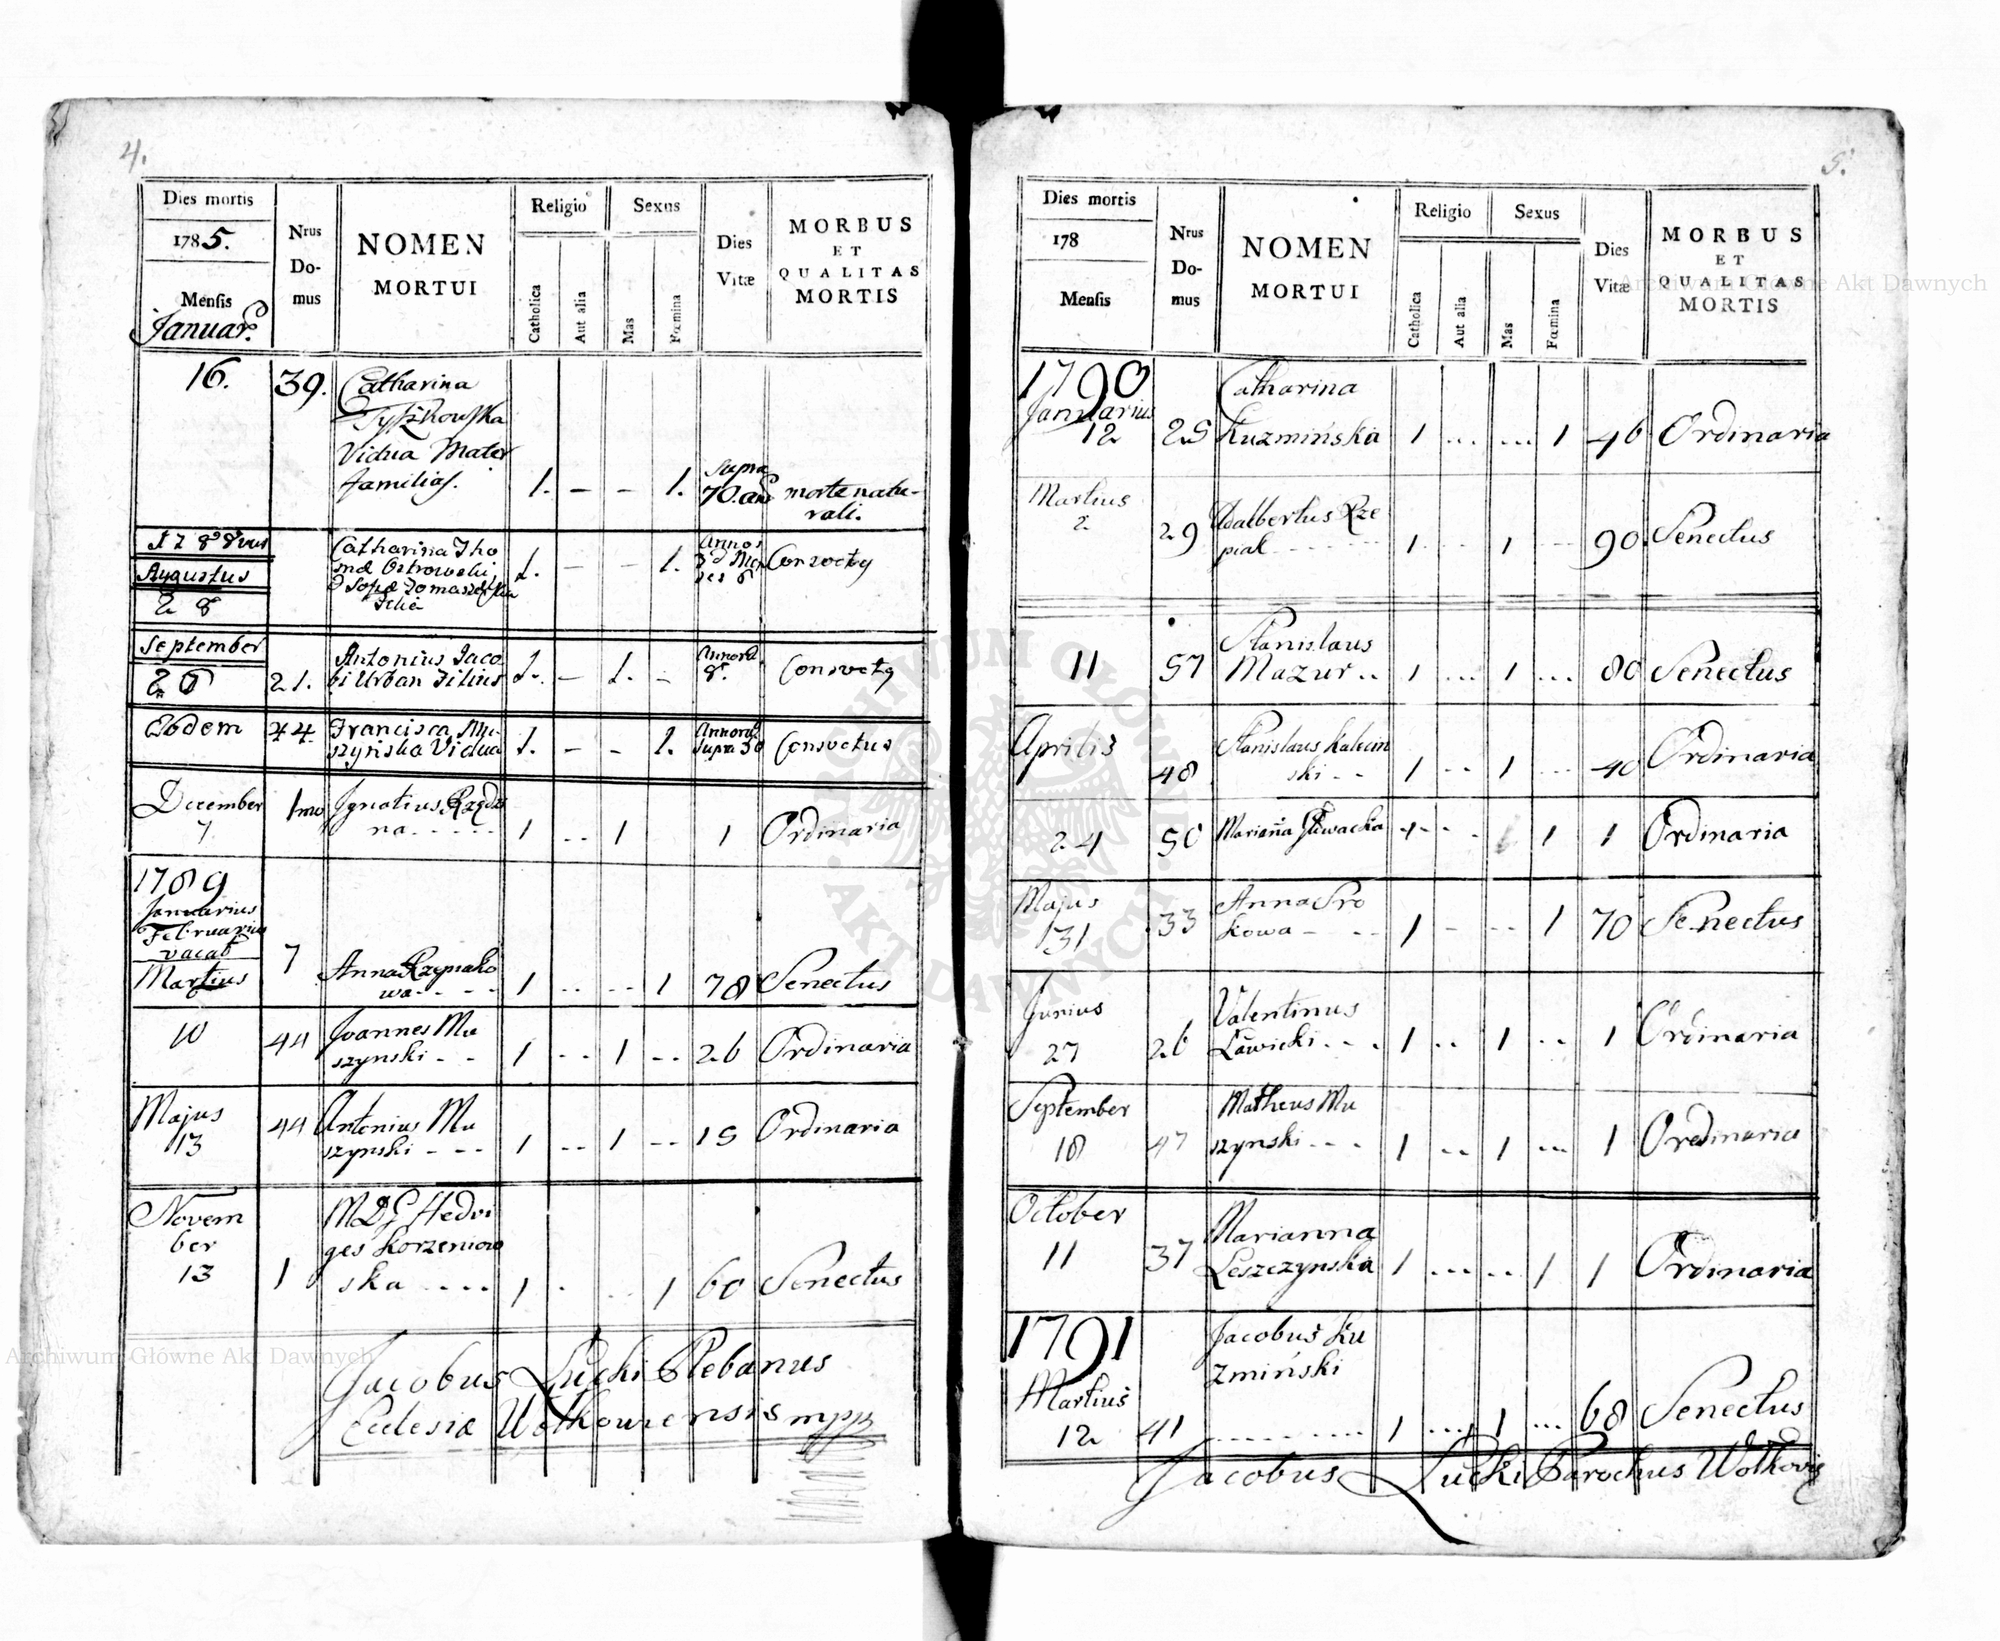 4.
Dies mortis
1785.
Mensis
Januar.
Nrus
Do-
mus
NOMEN
MORTUI
Religio
Catholica
Aut alia
Sexus
Mas
Fœmina
Dies
Vitæ
MORBUS
ET
QUALITAS
MORTIS
16. 39. Catharina
Tyszkowska
Vidua Mater
familias. 1. – – 1. Supra 70. morte natu-
rali.
Augustus
28
Catharina Tho
mæ Ostrowski
1. – – 1. Annos
September
26 21. Antonius Jaco
bi Urban Filius 1. – 1. – Annor. 8.
Eodem 44. Francisca Mu-
szyńska Vidua 1. – – 1. Supra 30 Consvetus
December
7 1mo Ignatius
na 1 -- 1 1 Ordinaria
1789
Januarius
Februarius
vacat
Martius
7 Anna Rzepiako
wa 1 -- -- 1 78 Senectus
10 44 Joannes Mu
szynski - - 1 -- 1 -- 26 Ordinaria
Majus
13 44 Antonius Mu
szynski - - - 1 -- 1 -- 15 Ordinaria
Novem
ber
13 1 MDG Hedvi
ges Korzeniow
ska .... 1 1 60 Senectus
Jacobus Łucki Plebanus
Eclesiæ Wołkoviensis mpp
5.
Dies mortis
178
Mensis
Nrus
Do-
mus
NOMEN
MORTUI
Religio
Catholica
Aut alia
Sexus
Mas
Fœmina
Dies
Vitæ
MORBUS
ET
QUALITAS
MORTIS
1790
Januarius
12 25 Catharina
Kuzmińska 1 ... ... 1 46 Ordinaria
Martius
2 29 Adalbertus Rze
piak 1 1 90 Senectus
11 57 Stanislaus
Mazur .. 1 ... 1 ... 80 Senectus
Aprilis
48 Stanislaus Kalecin
ski - - 1 -- 1 ... 40 Ordinaria
24 50 Marianna Głuwacka 1 1 1 Ordinaria
Majus
131 33 Anna Pro
kowa 1 - -- 1 70 Senectus
Junius
27 26 Valentinus
Ławicki 1 .. 1 .. 1 Ordinaria
September
18 47 Matheus Mu
szynski - - - 1 -- 1 ... 1 Ordinaria
October
11 37 Marianna
Leszczynska 1 ... .. 1 1 Ordinaria
1791
Martius
12 41 Jacobus Ku
zmiński
1 .... 1 ... 68 Senectus
Jacobus Łucki Parochus
Archiwum Główne Akt Dawnych
Archiwum Główne Akt Dawnych
ARCHIWUM GŁÓWNE
AKT DAWNYCH